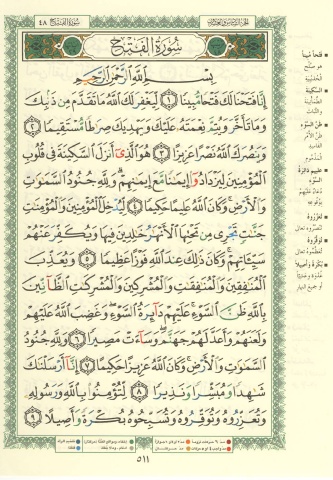 سُورَةُ الفَتْحِ ٤٨
الجزء السادس والعشرون
سُورَةُ الفَتْحِ
بِسْمِ اللَّهِ الرَّحْمَٰنِ الرَّحِيمِ
إِنَّا فَتَحْنَا لَكَ فَتْحًا مُّبِينًا ١ لِّيَغْفِرَ لَكَ اللَّهُ مَا تَقَدَّمَ مِن ذَنبِكَ
وَمَا تَأَخَّرَ وَيُتِمَّ نِعْمَتَهُ عَلَيْكَ وَيَهْدِيَكَ صِرَاطًا مُّسْتَقِيمًا ٢
وَيَنصُرَكَ اللَّهُ نَصْرًا عَزِيزًا ٣ هُوَ الَّذِي أَنزَلَ السَّكِينَةَ فِي قُلُوبِ
الْمُؤْمِنِينَ لِيَزْدَادُوا إِيمَٰنًا مَّعَ إِيمَٰنِهِمْ وَلِلَّهِ جُنُودُ السَّمَٰوَٰتِ
وَالْأَرْضِ وَكَانَ اللَّهُ عَلِيمًا حَكِيمًا ٤ لِّيُدْخِلَ الْمُؤْمِنِينَ وَالْمُؤْمِنَٰتِ
جَنَّٰتٍ تَجْرِي مِن تَحْتِهَا الْأَنْهَٰرُ خَٰلِدِينَ فِيهَا وَيُكَفِّرَ عَنْهُمْ
سَيِّـَٔاتِهِمْ وَكَانَ ذَٰلِكَ عِندَ اللَّهِ فَوْزًا عَظِيمًا ٥ وَيُعَذِّبَ
الْمُنَٰفِقِينَ وَالْمُنَٰفِقَٰتِ وَالْمُشْرِكِينَ وَالْمُشْرِكَٰتِ الظَّانِّينَ
بِاللَّهِ ظَنَّ السَّوْءِ عَلَيْهِمْ دَائِرَةُ السَّوْءِ وَغَضِبَ اللَّهُ عَلَيْهِمْ
وَلَعَنَهُمْ وَأَعَدَّ لَهُمْ جَهَنَّمَ وَسَاءَتْ مَصِيرًا ٦ وَلِلَّهِ جُنُودُ
السَّمَٰوَٰتِ وَالْأَرْضِ وَكَانَ اللَّهُ عَزِيزًا حَكِيمًا ٧ إِنَّا أَرْسَلْنَٰكَ
شَٰهِدًا وَمُبَشِّرًا وَنَذِيرًا ٨ لِّتُؤْمِنُوا بِاللَّهِ وَرَسُولِهِ
وَتُعَزِّرُوهُ وَتُوَقِّرُوهُ وَتُسَبِّحُوهُ بُكْرَةً وَأَصِيلًا ٩
فتحاً مبيناً
هو صلح
الحديبية
السكينة
ظن السوء
دائرة
السوء
تعزروه
تنصروه تعالى
توقروه
تعظموه تعالى
بكرة وأصيلاً
غدوة وعشياً
أو جميع النهار
٥١١